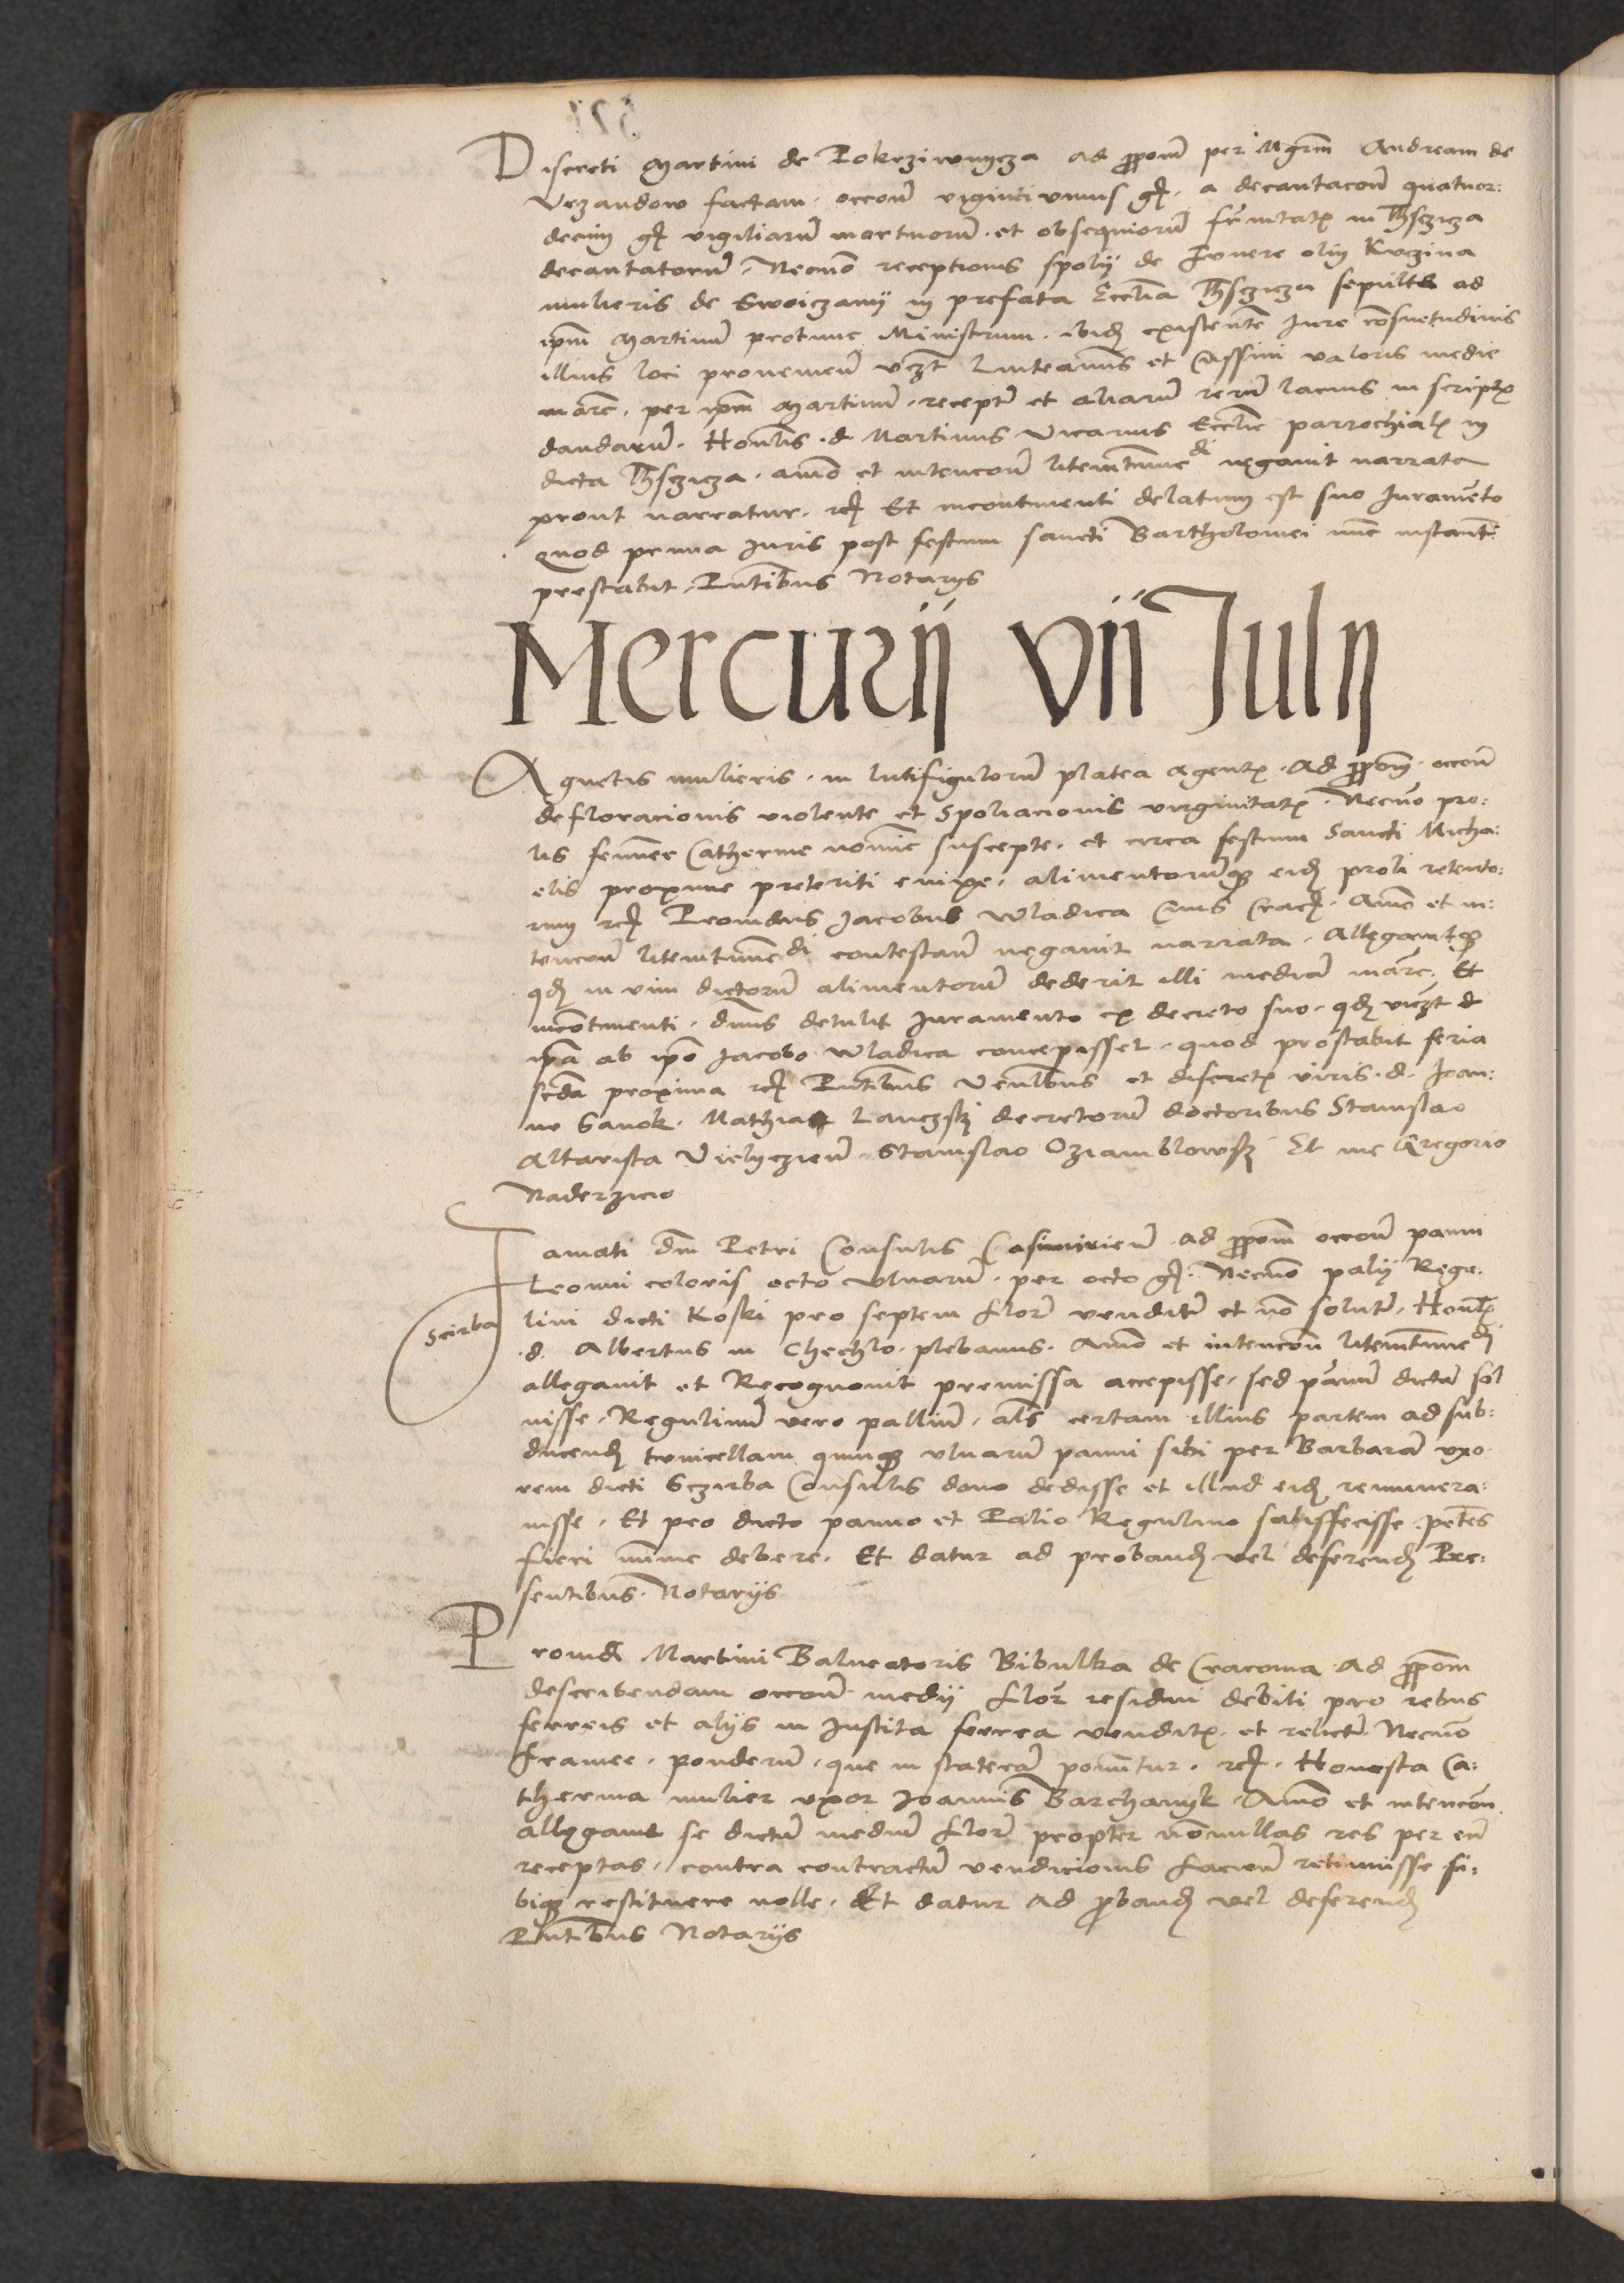 Discreti Martini de Pokrziwnycza ad propom per Mgrm Andream de
Vrzandow factam, occone viginti unius gr. a decantacone quatuor:
decim gr. vigiliarum mortuorum et obsequiorum in
decantatorum, Necno receptionis spolij de funere olim Kuzina
mulieris de Swoiczanij in prefata Ecclia sepulte ad
ipm Martinum protunc Ministrum ibidem existente Iure consuetudinis
illius loci provenien vczt Linteaminis et Cussini valoris medie
marce, per ipm Martinum recepte et aliarum rerum lacius in scriptis
dandarum. Honlis d. Martinus Vicarius Ecclie parrochialis in
dicta aimo et intencone litemtimedi negavit narrata
prout narratur, rc. Et incontinenti delatum est suo Iuramento
quod prima Iuris post festum sancti Bartholomei nunc instanti
prestabit, Pntibus Notarijs
Mercurij vii Julij
Agnetis mulieris in lutifigulorum platea agentis. Ad propom occone
defloracionis violente et Spoliacionis virginitatis. Necno pro:
lis feminee Catherine nomine suscepte, et circa festum Sancti Micha:
elis proxime preteriti enixe, alimentorumque eidem proli retento:
rum rc. Providus Jacobus Wladica Civis Crac. Aimo et in:
tencone litemtimedi contestan negavit narrata, Allegavitque
quod in vim dictorum alimentorum dederit illi mediam marc. Et
incontinenti, dnus detulit Iuramento ex decreto suo, quod viczt
ipa ab ipo Jacobo Wladica concepisset, quod prestabit feria
scda proxima rc. Pntibus Venlibus et discretis viris d. Ioan:
ne Sanok, Mathia decretorum doctoribus Stanislao
Altarista Vielyczien, Stanislao Et me Gregorio
Naderzicio
Famati dni Petri Consulis Casimirien ad propom occone panni
Leonini coloris octo ulnarum, per octo gr. Necno palij Regu:
Scirba
lini dicti Koski pro septem flor vendite et no solute, Honlis
d. Albertus in Chechlo plebanus. Aimo et intencone litemtimedi
allegavit et Recognovit premissa accepisse, sed panum dictum sol
visse, Regulinum vero pallium, als certam illius partem ad sub:
ducend tunicellam quinque ulnarum panni sibi per Barbaram uxo
rem dicti Sczirba Consulis dono dedisse et illud eidem remunera:
visse, Et pro dicto panno et Palio Regulino satisfecisse, petens
fieri minime debere, Et datur ad proband vel deferend Pre:
sentibus Notarijs
Providi Martini Balneatoris Bibulka de Cracovia ad propom
describendam occone medij flor residui debiti pro rebus
ferreis et alijs in Instita ferrea venditis et relicte Necno
framee, ponderum, que in stateram ponuntur, rc. Honesta Ca:
therina mulier uxor Ioannis Barchanyk, Aimo et intencone
allegavit se dictum medium flor propter nonullas res per eum
receptas, contra contractum vendicionis retinuisse si:
bique restituere nolle, Et datur ad proband vel deferend
Pntibus Notarijs